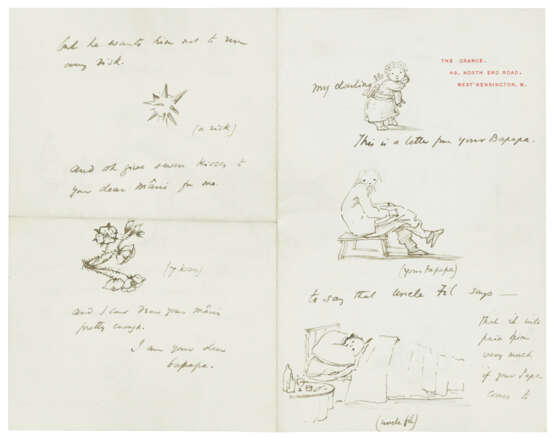 he wants him not to run
any risk.
(a risk)
And oh give seven kisses to
your dear mâmi for me.
and I can't draw your mâmi
pretty enough.
I am your dear
bapapa.
THE GRANGE,
49, NORTH END ROAD,
WEST KENSINGTON, W.
my darling
This is a letter from your Bapapa.
(your bapapa)
to say that Uncle Fil says —
That it will
pain
very much
if your Papa
comes
(uncle fil)